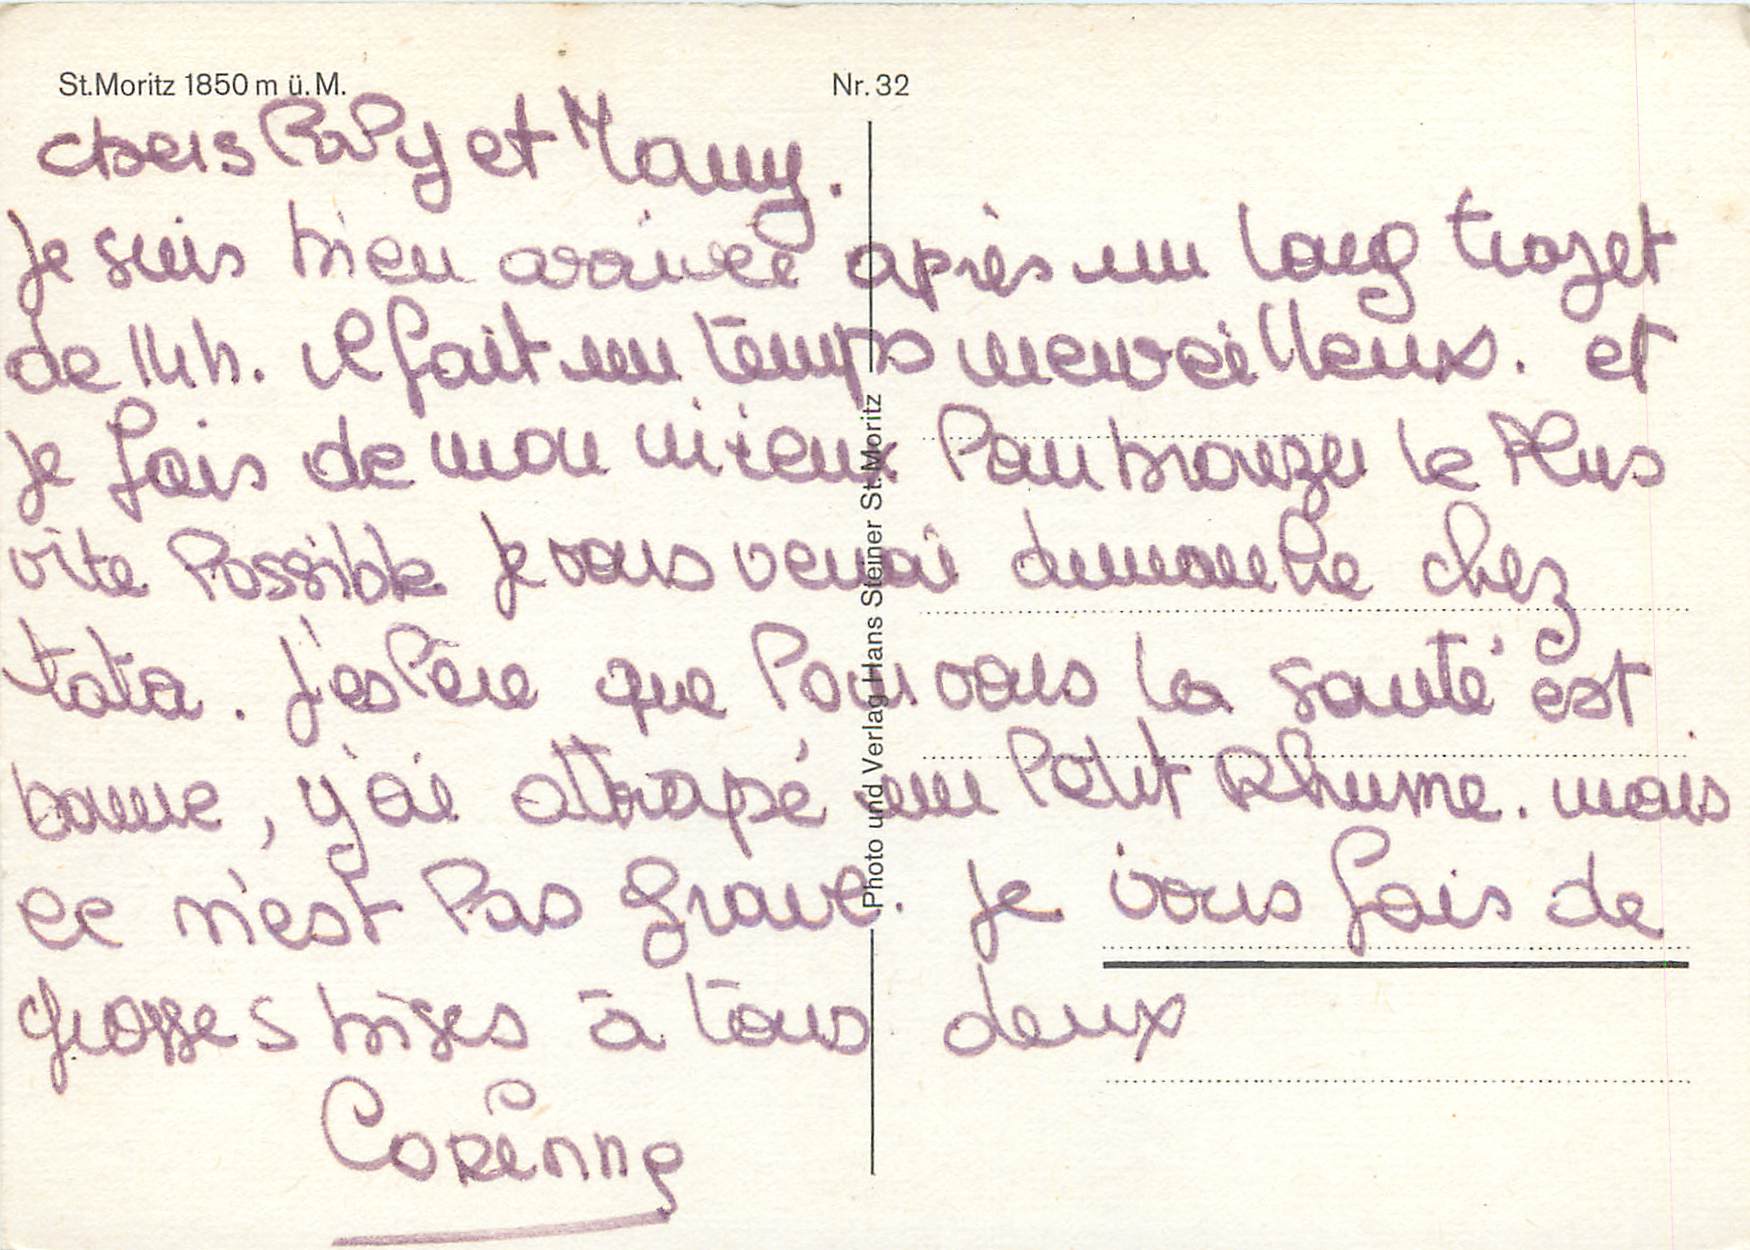 St.Moritz 1850 m ü. M.
Nr. 32
chers Papy et Mamy.
Je suis bien arrivée après un long trajet
de 14h. il fait un temps merveilleux. et
je fais de mon mieux Pour bronzer le Plus
vite Possible je vous verrai dimanche chez
tata. J'esPère que Pour vous la santé est
bonne, j'ai attrapé un Petit Rhume. mais
ce n'est Pas grave. je vous fais de
grosses bises à tous deux
Corinne
Photo und Verlag Hans Steiner St. Moritz